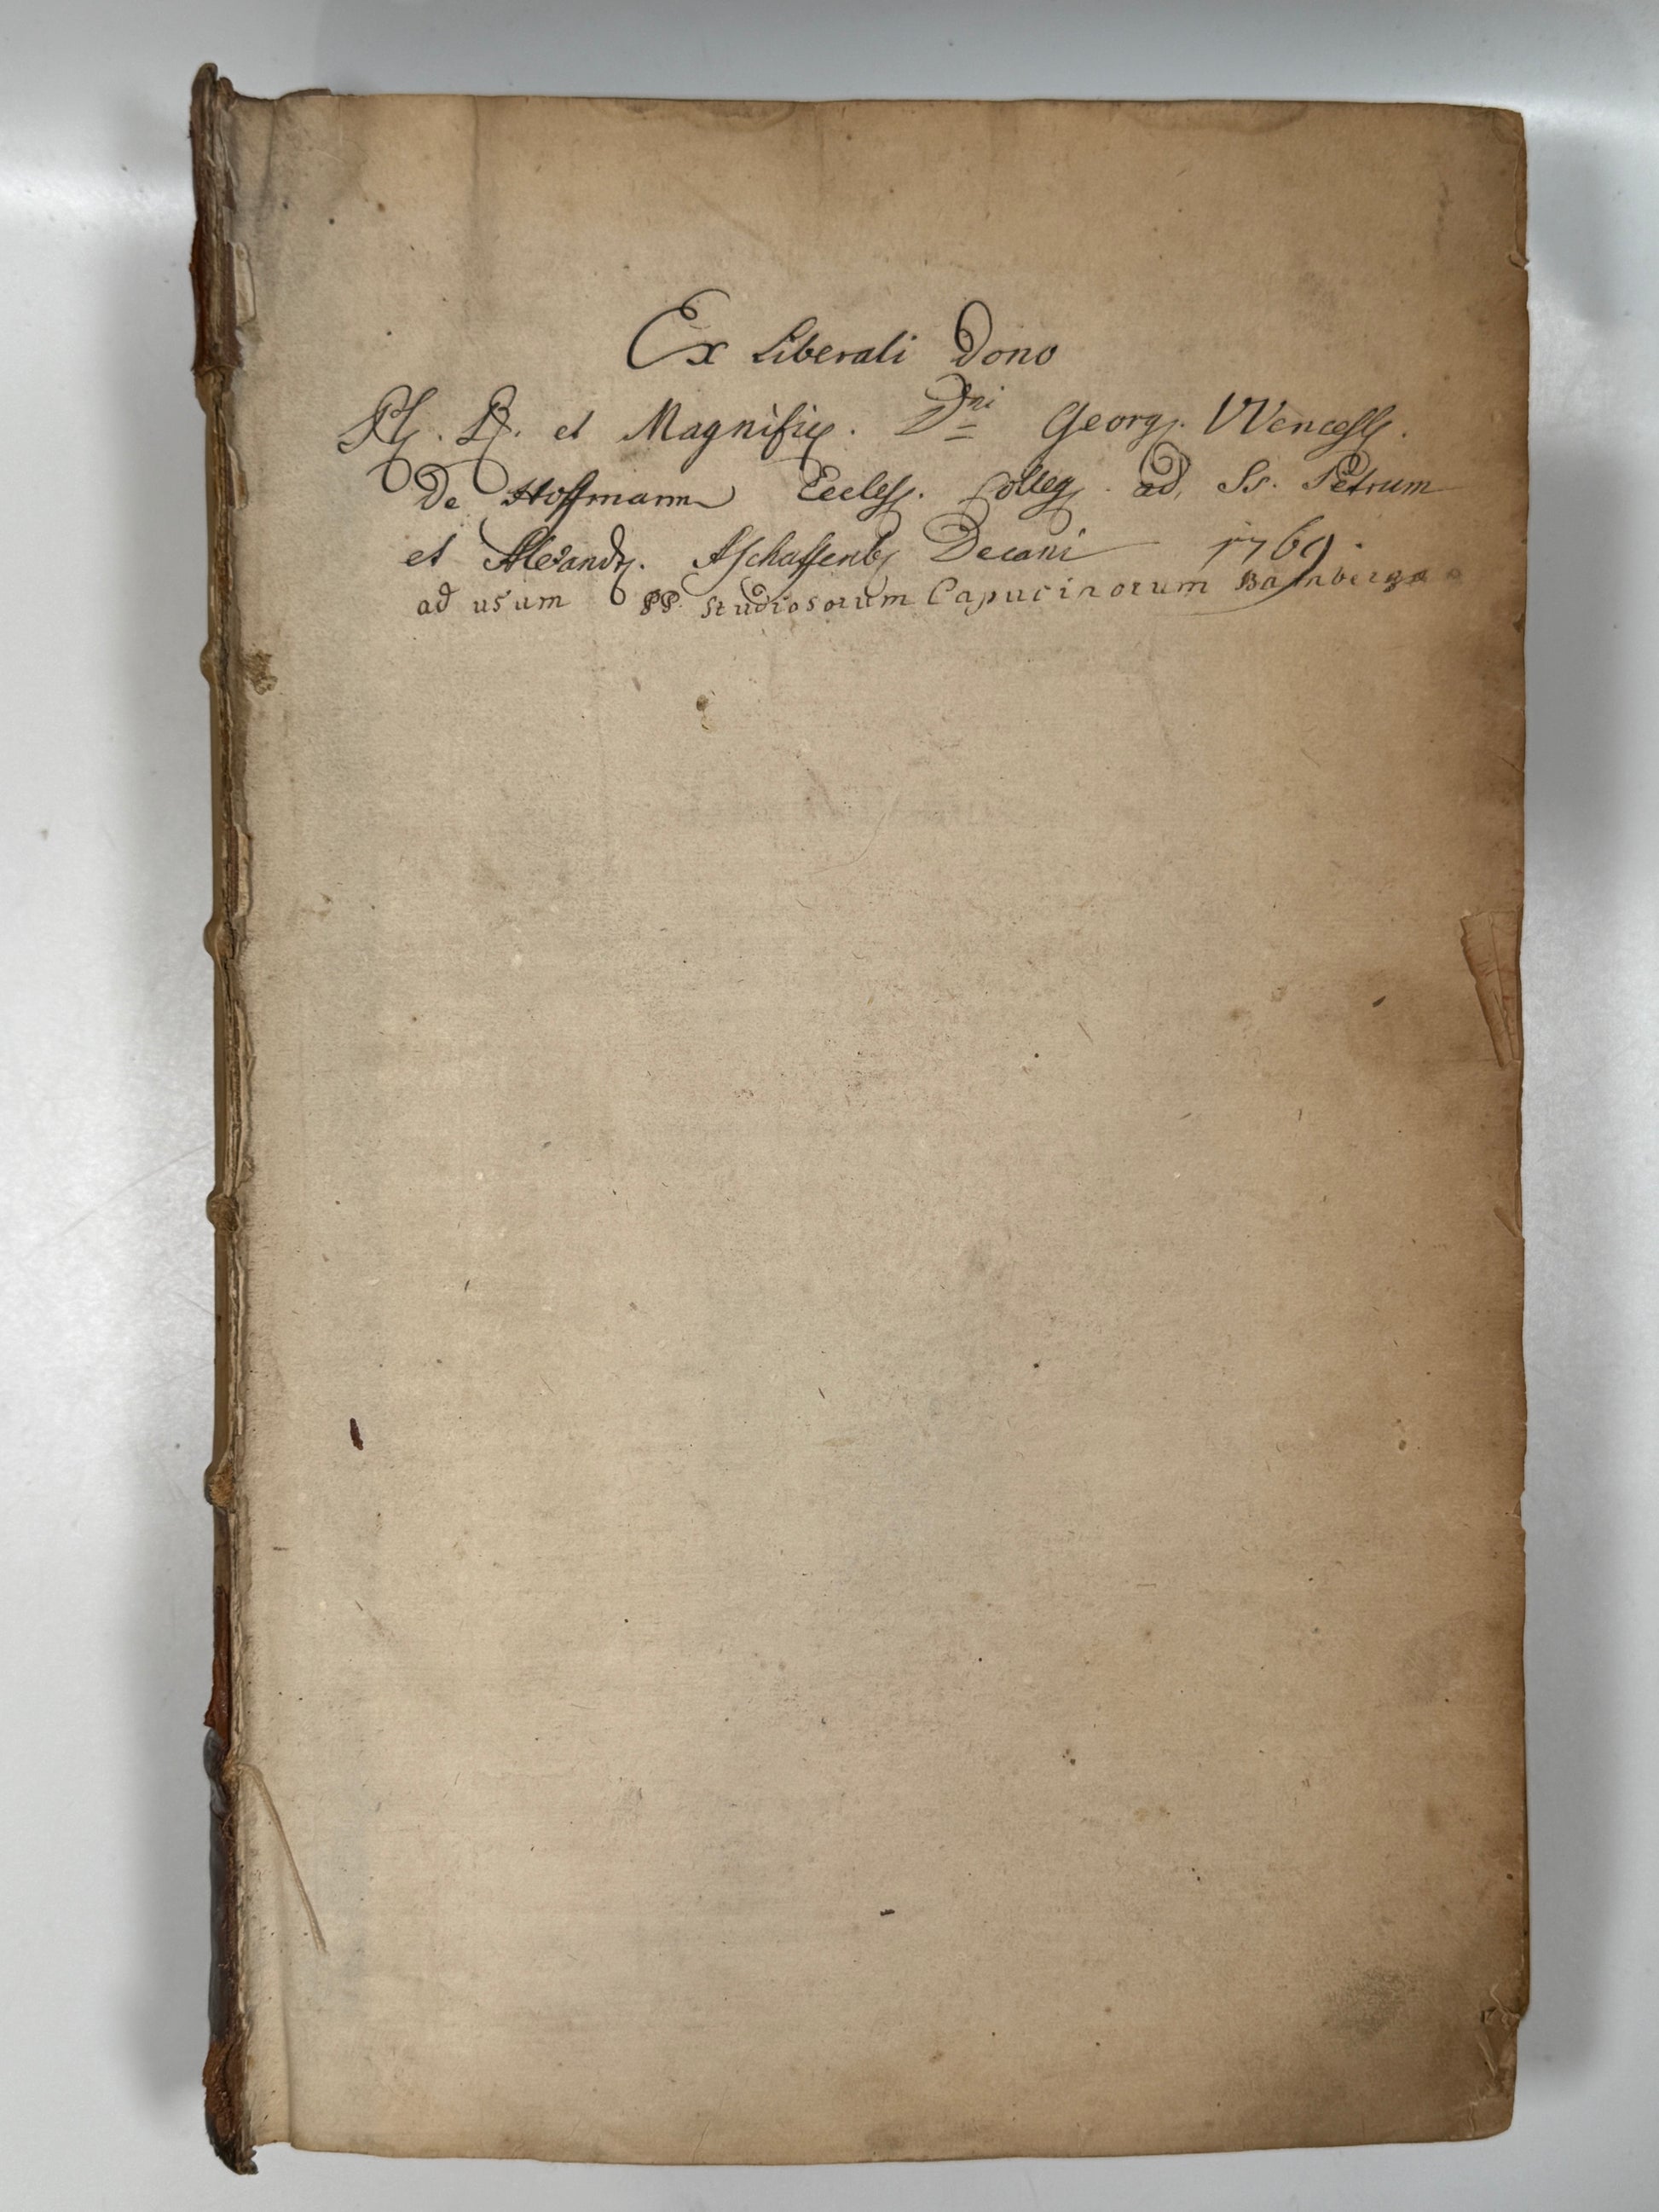 Ex Liberali Dono
Pl. R. et Magnific. Dni Georg. Wencesl.
De Hoffmann Eccles. Colleg. ad Ss. Petrum
et Alexandr. Aschaffenb. Decani 1769.
ad usum PP. Studiosorum Capucinorum Bamberga